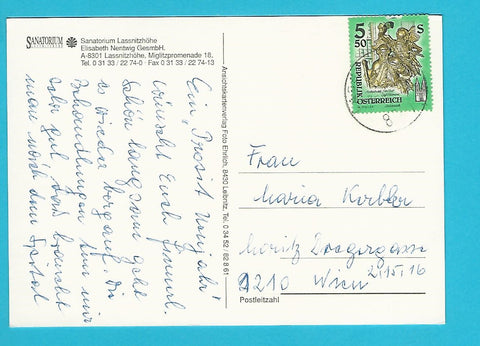 SANATORIUM
Sanatorium Lassnitzhöhe
Elisabeth Nentwig GesmbH.
A-8301 Lassnitzhöhe, Miglitzpromenade 18,
Tel. 0 31 33 / 22 74-0 · Fax 0 31 33 / 22 74-13
Ein "Prosit Neujahr"
wünscht Euch
Schön langsam geht
es wieder bergauf. Die
Behandlungen tun mir
sehr gut, das braucht
man nach dem Spital
Ansichtskartenverlag Foto Ehrlich, 8430 Leibnitz, Tel. 0 34 52 / 82 8 61
5 50 S
REPUBLIK
ÖSTERREICH
Frau
Maria Korber
Moritz Dregergasse
21/5/16
1210 Wien
Postleitzahl